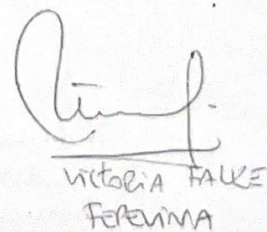 VICTORIA FALKE
FEPEVINA